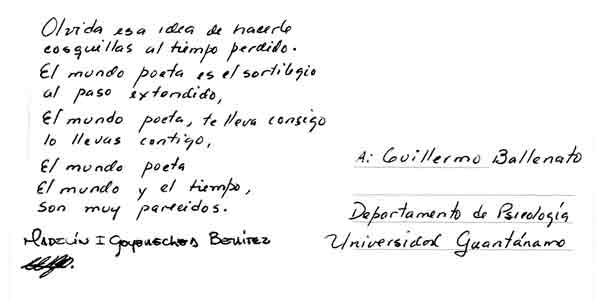 Olvida esa idea de hacerle
cosquillas al tiempo perdido.
El mundo poeta es el sortilegio
al paso extendido,
El mundo poeta, te lleva consigo
lo llevas contigo,
El mundo poeta
El mundo y el tiempo,
son muy parecidos.
I Goyeneches Benítez
A: Guillermo Ballenato
Departamento de Psicología
Universidad Guantánamo